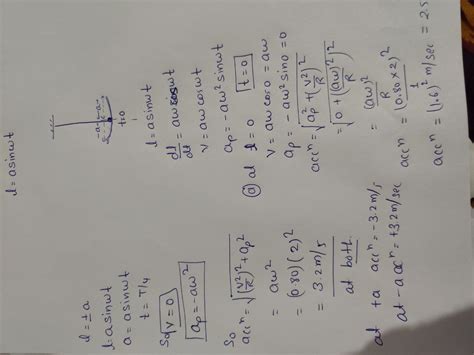 l = a sinωt
-a→←a→
t=0
l = a sinωt
dl/dt = aω cosωt
v = aω cosωt
ap = -aω² sinωt
(a) at l = 0 t = 0
v = aω cos0 = aω
ap = -aω² sin0 = 0
accⁿ = √(ap² + (v²/R)²)
= √(0 + ((aω)²/R)²)
= (aω)²/R
accⁿ = (0.80 × 2)²/1
accⁿ = (1.6)² m/sec = 2.5
l = ±a
l = a sinωt
a = a sinωt
t = T/4
So v = 0
ap = -aω²
So
accⁿ = √((v²/R)² + ap²)
= aω²
= (0.80)(2)²
= 3.2 m/s
at both
at +a accⁿ = -3.2 m/s
at -a accⁿ = +3.2 m/sec